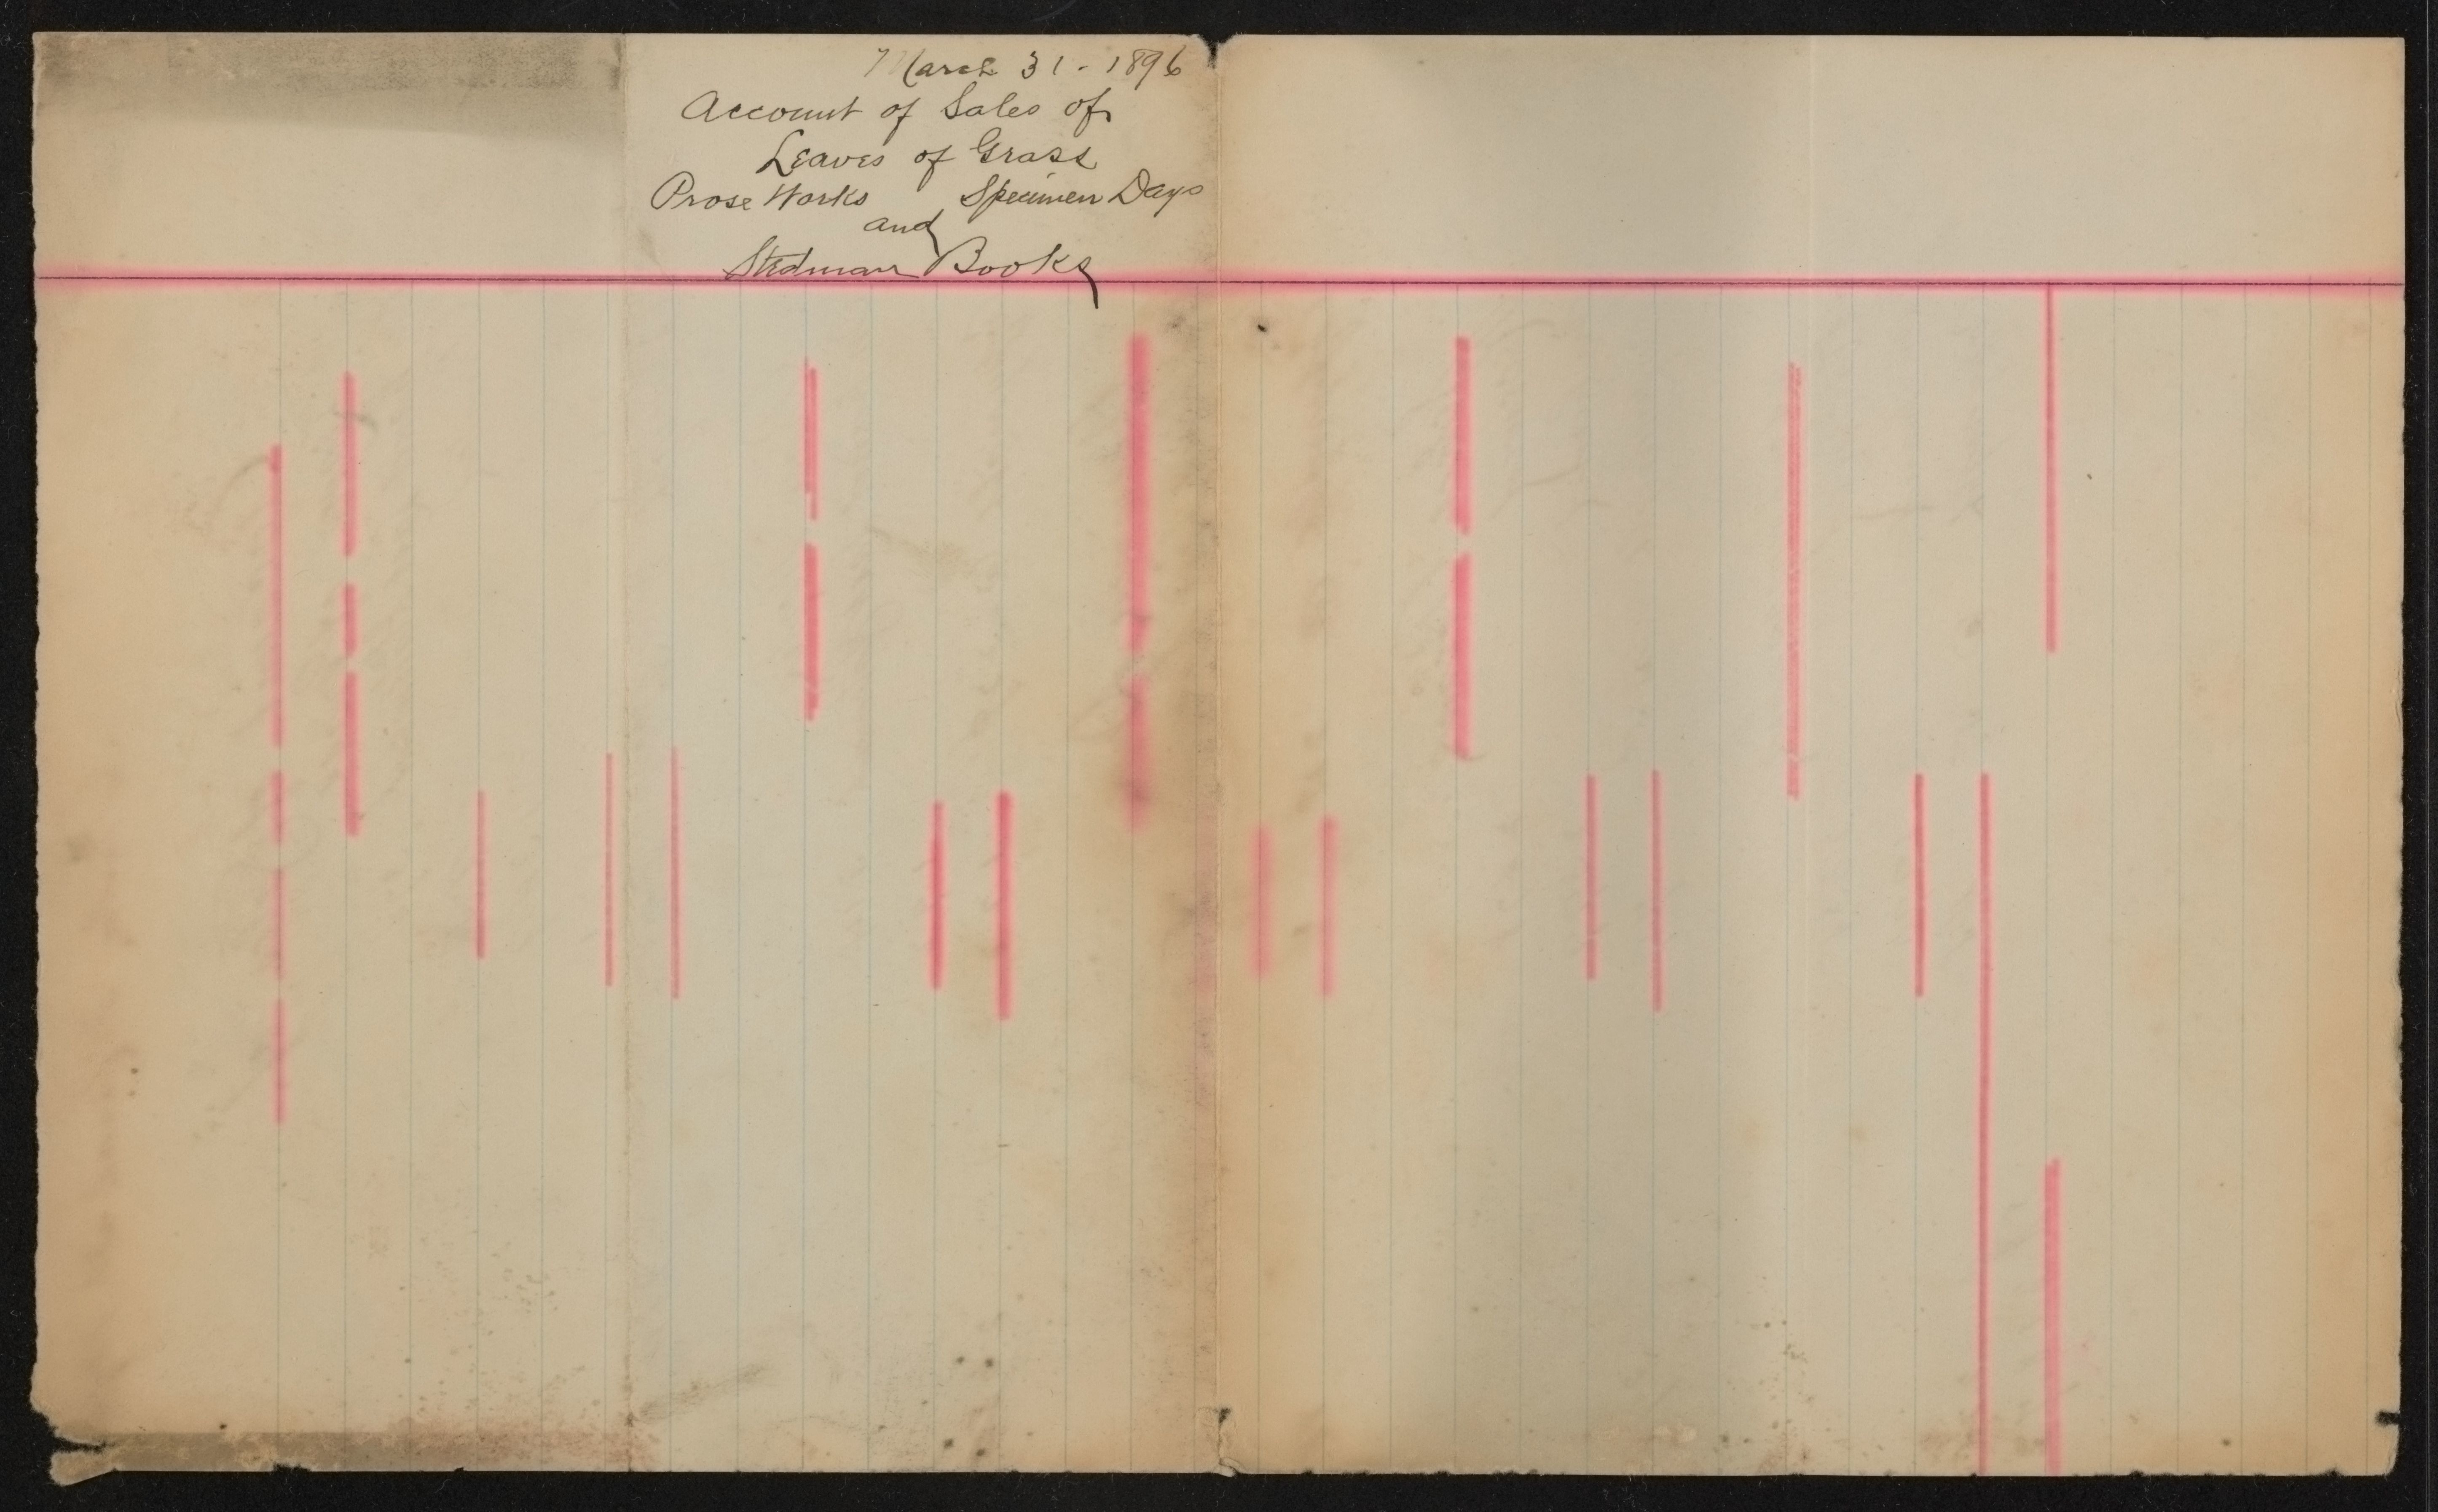 March 31 - 1896
Account of Sales of
Leaves of Grass
Prose Works Specimen Days
and
Stedman Books